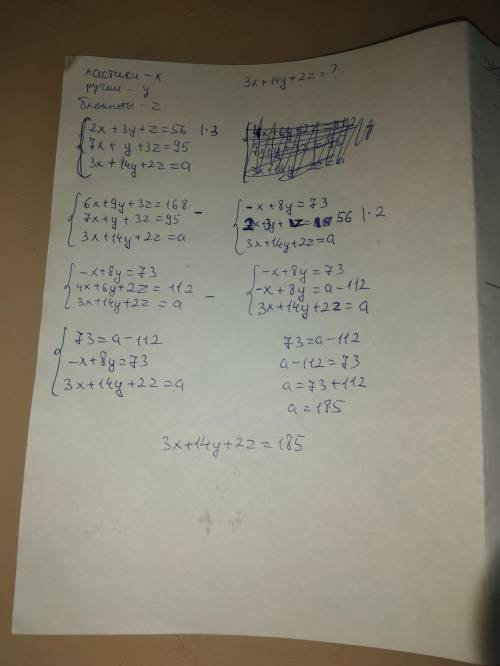 ластики - x
ручки - y
блокноты - z
3x+14y+2z=?
2x+3y+z=56 |·3
7x+y+3z=95
3x+14y+2z=a
6x+9y+3z=168 -
7x+y+3z=95
3x+14y+2z=a
-x+8y=73
56 |·2
3x+14y+2z=a
-x+8y=73
4x+6y+2z=112
3x+14y+2z=a -
-x+8y=73
-x+8y=a-112
3x+14y+2z=a
73=a-112
-x+8y=73
3x+14y+2z=a
73=a-112
a-112=73
a=73+112
a=185
3x+14y+2z=185